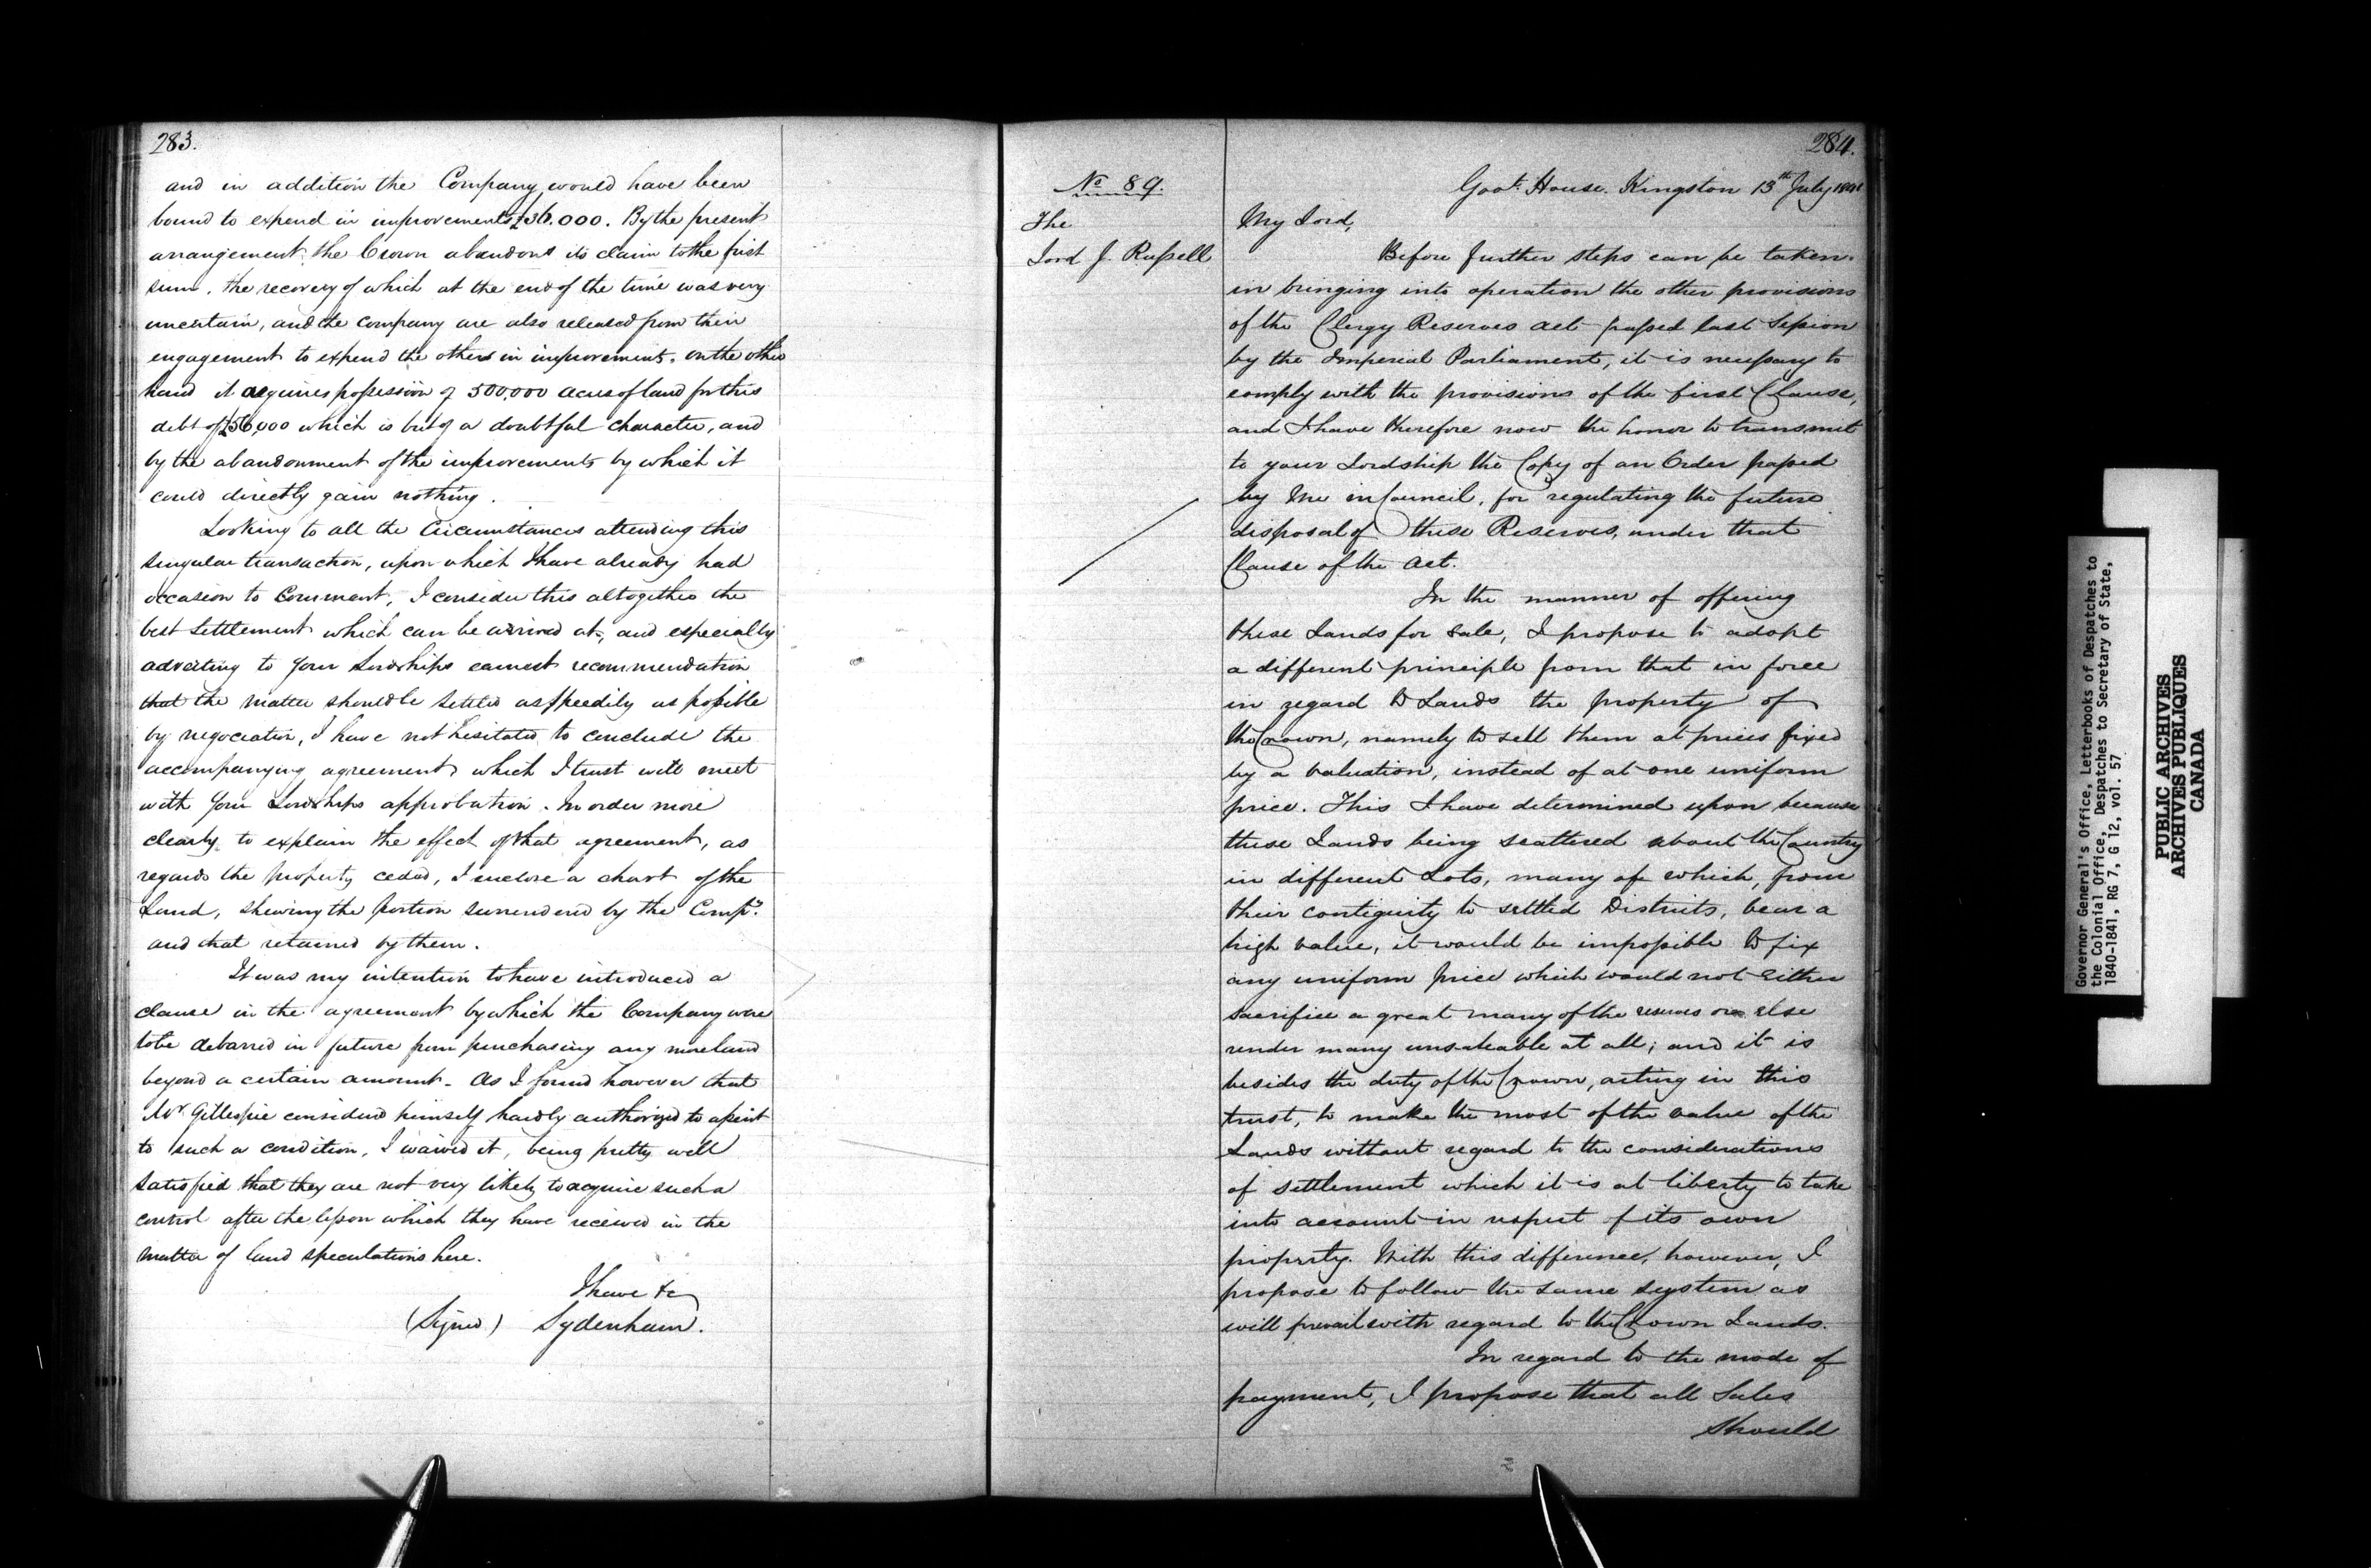 283.
and in addition the Company would have been
bound to expend in improvements £36.000. By the present
arrangement the Crown abandons its claim to the first
sum, the recovery of which at the end of the time was very
uncertain, and the Company are also released from their
engagement to expend the others in improvements. On the other
hand it acquires possession of 500,000 acres of land for this
debt of £56,000 which is but of a doubtful character, and
by the abandonment of the improvements by which it
could directly gain nothing.
Looking to all the Circumstances attending this
singular transaction, upon which I have already had
occasion to Comment, I consider this altogether the
best settlement which can be arrived at, and especially
adverting to Your Lordships earnest recommendation
that the matter should be settled as speedily as possible
by negociation, I have not hesitated to conclude the
accompanying agreement which I trust will meet
with Your Lordships approbation. In order more
clearly to explain the effect of that agreement, as
regards the property ceded, I enclose a chart of the
Land, shewing the portion surrendered by the Compy.
and that retained by them.
It was my intention to have introduced a
clause in the agreement by which the Company were
to be debarred in future from purchasing any more land
beyond a certain amount. As I found however that
Mr Gillespie considered himself hardly authorized to assent
to such a condition, I waived it, being pretty well
satisfied that they are not very likely to acquire such a
control after the lesson which they have received in the
matter of land speculations here.
I have &c
(Signed) Sydenham.
284.
No 89.
The
Lord J. Russell
Govt. House. Kingston 13th July 1841
My Lord,
Before further steps can be taken
in bringing into operation the other provisions
of the Clergy Reserves Act passed last Session
by the Imperial Parliament, it is necessary to
comply with the provisions of the first Clause,
and I have therefore now the honor to transmit
to your Lordship the Copy of an Order passed
by Me in Council, for regulating the future
disposal of these Reserves, under that
Clause of the Act.
In the manner of offering
these Lands for sale, I propose to adopt
a different principle from that in force
in regard to Lands the property of
the Crown, namely to sell them at prices fixed
by a valuation, instead of at one uniform
price. This I have determined upon because
these Lands being scattered about the Country
in different Lots, many of which, from
their contiguity to settled Districts, bear a
high value, it would be impossible to fix
any uniform price which would not either
sacrifice a great many of the reserves or else
render many unsaleable at all; and it is
besides the duty of the Crown, acting in this
trust, to make the most of the value of the
Lands without regard to the considerations
of settlement which it is at liberty to take
into account in respect of its own
property. With this difference, however, I
propose to follow the same system as
will prevail with regard to the Crown Lands.
In regard to the mode of
payment, I propose that all Sales
should
Governor General's Office, Letterbooks of Despatches to
the Colonial Office, Despatches to Secretary of State,
1840-1841, RG 7, G 12, vol. 57
PUBLIC ARCHIVES
ARCHIVES PUBLIQUES
CANADA